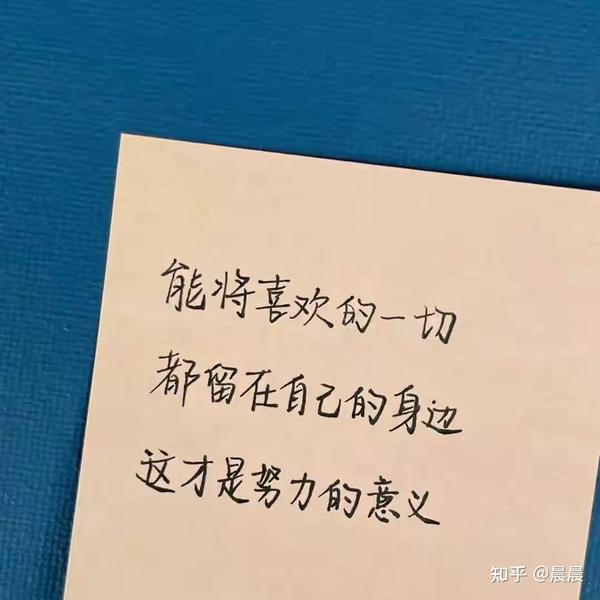 能将喜欢的一切
都留在自己的身边
这才是努力的意义
知乎 @晨晨